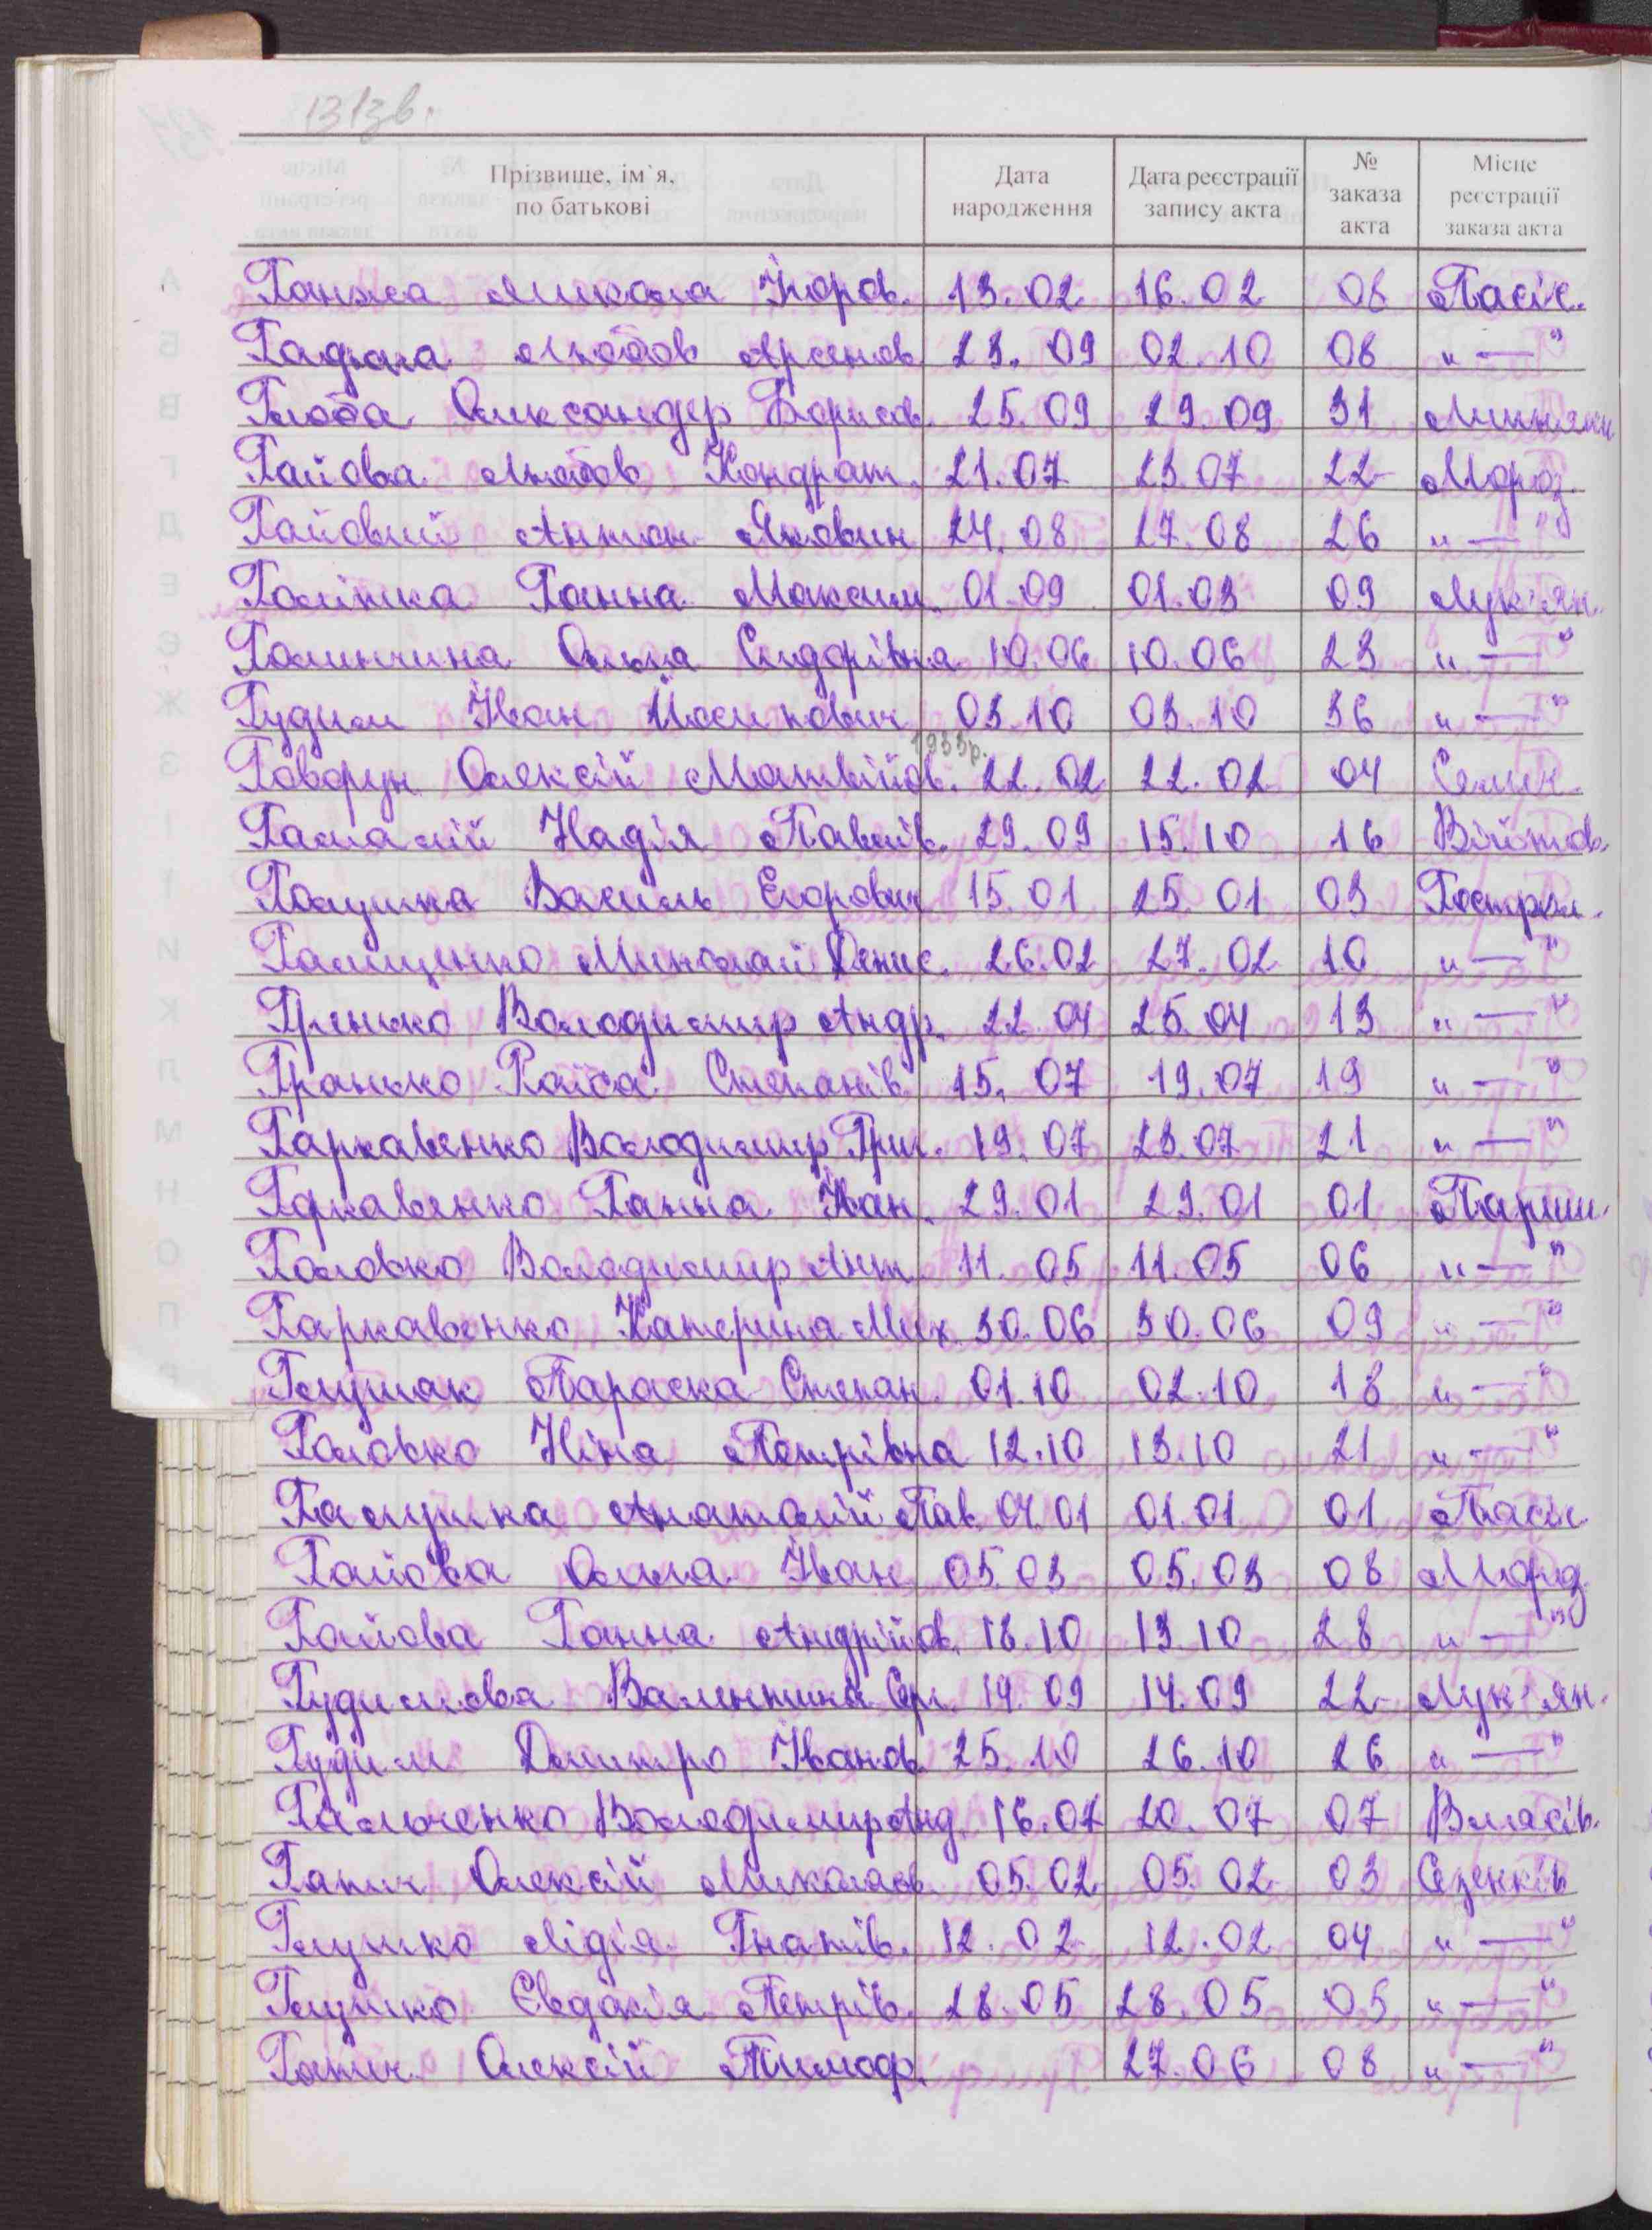 131зв.
Прізвище, ім`я, по батькові Дата народження Дата реєстрації запису акта № заказа акта Місце реєстрації заказа акта
Ганжа Микола Ігоров. 13.02 16.02 08 Пасіч.
Любов Арсенов 23.09 02.10 08 " — "
Глоба Олександер Борисов. 25.09 29.09 31
Гайова Любов Кондрат. 21.07 23.07 22 Мороз.
Гайовий Антон Якович 24.08 27.08 26 " — "
Ганна Максим. 01.09 01.09 09 Лук'ян.
Галинчина Ольга Сидорівна 10.06 10.06 23 " — "
Гудим Іван Йосипович 03.10 03.10 36 " — "
1933р.
Говорун Олексій Матвійов. 22.02 22.02 04 Семен.
Гамалій Надія Павлів. 29.09 15.10 16 Війтов.
Галушка Василь Егорович 15.01 25.01 03 Гостров.
Галущенко Миколай Денис. 26.02 27.02 10 " — "
Гринько Володимир Андр. 22.04 25.04 13 " — "
Раїса Степанів. 15.07 19.07 19 " — "
Гаркавенко Володимир Григ. 19.07 23.07 21 " — "
Гаркавенко Ганна Іван. 29.01 29.01 01 Париш.
Головко Володимир Ант. 11.05 11.05 06 " — "
Гаркавенко Катерина Мих. 30.06 30.06 09 " — "
Глушак Параска Степан. 01.10 02.10 18 " — "
Головко Ніна Петрівна 12.10 13.10 21 " — "
Галушка Анатолій Пав. 01.01 01 Пасіч
Гайова Ольга Іван 05.03 05.03 08 Мороз.
Гайова Ганна Андрійов. 18.10 19.10 28 " — "
Гудимова Валентина Сер. 14.09 14.09 22 Лук'ян.
Гудим Дмитро Іванов. 25.10 26.10 26 " — "
Гальченко Володимир Анд. 16.07 20.07 07 Власів.
Гапич Олексій Миколаєв. 05.02 05.02 03 Сезенків
Глушко Лідія Гнатів. 12.02 12.02 04 " — "
Глушко Євдокія Петрів. 28.05 28.05 05 " — "
Гапич Олексій Тимоф. 27.06 08 " — "